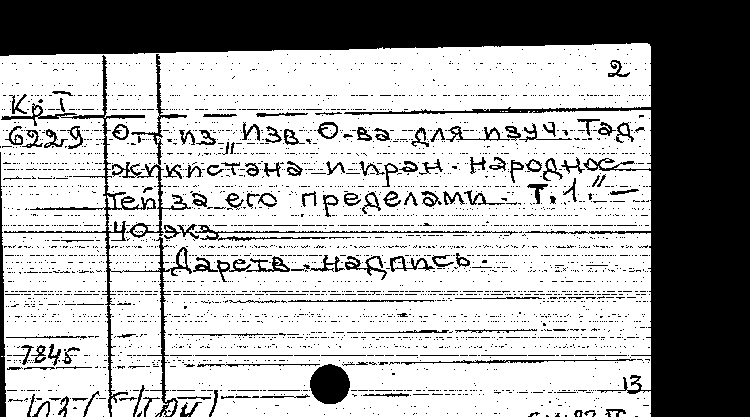 2
Кр I
6229 Отт. из „Изв. О-ва для изуч. Тад-
жикистана и иран. народнос-
тей за его пределами. Т.1." —
40 экз.
Дарств. надпись.
7845
13